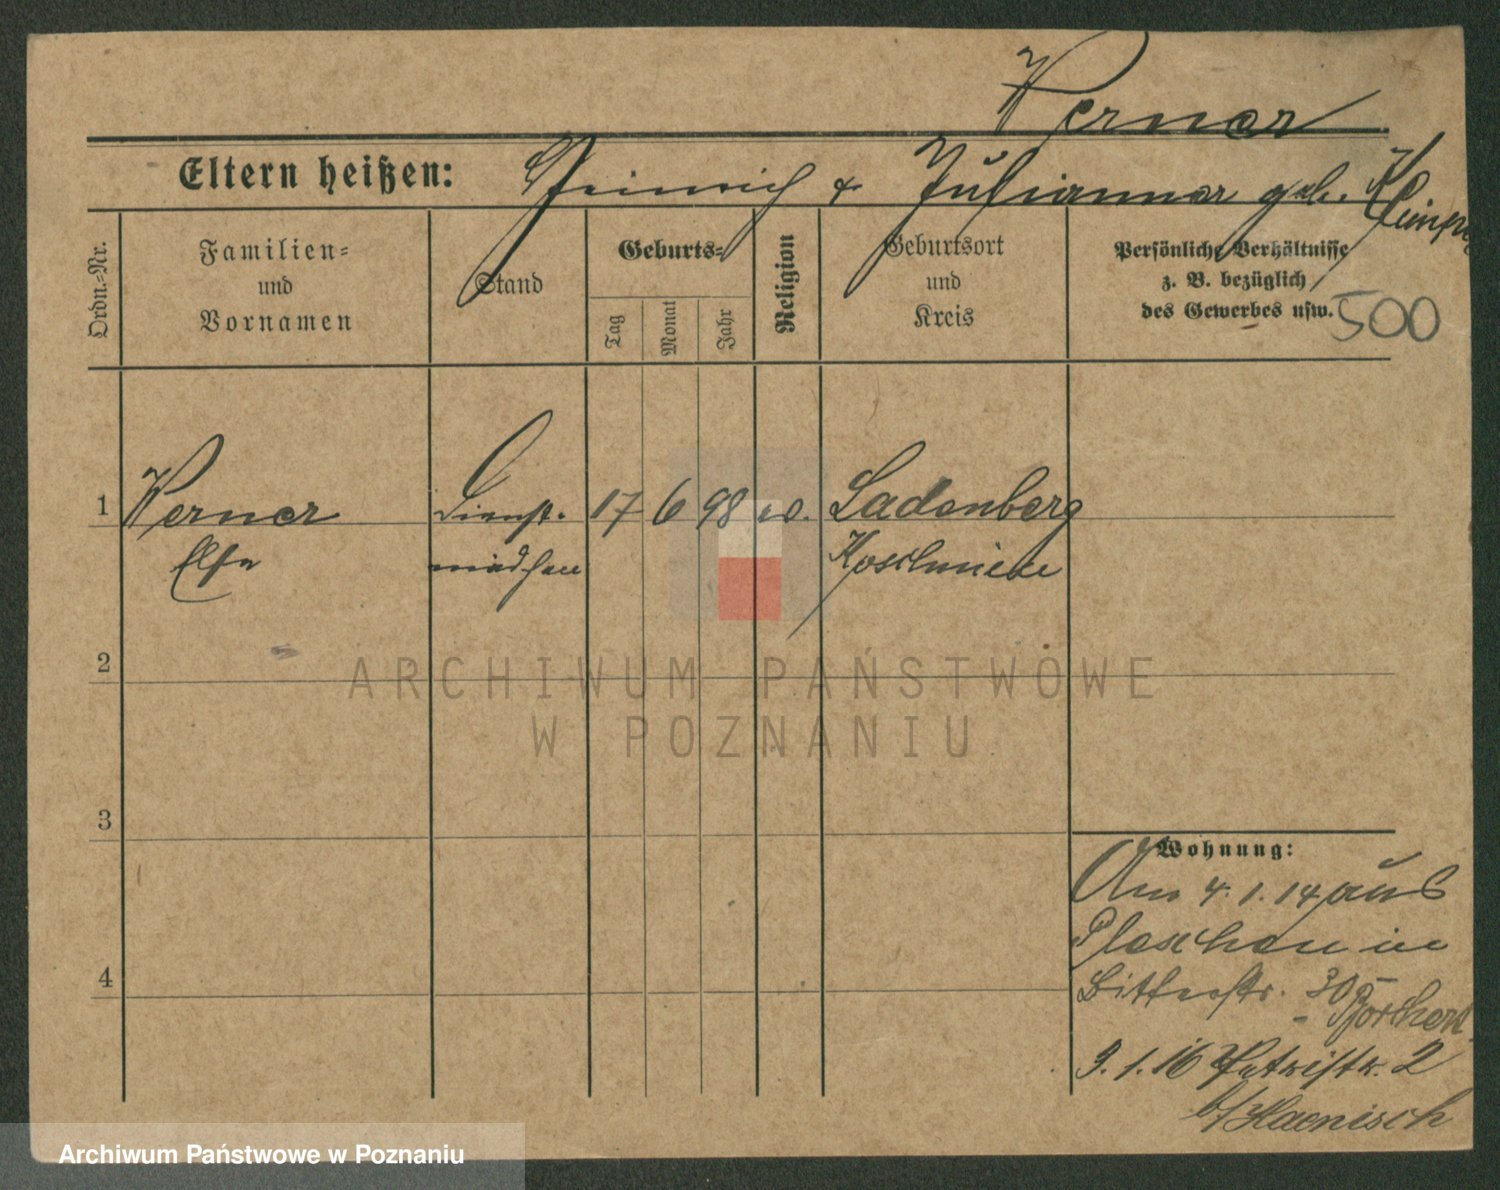 Werner
Eltern heißen: Heinrich & Julianna geb.
Ordn.-Nr.
Familien-
und
Vornamen
Stand
Geburts-
Tag
Monat
Jahr
Religion
Geburtsort
und
Kreis
Persönliche Verhältnisse
z. B. bezüglich
des Gewerbes usw.
500
1 Werner Dienst- 17 6 98 ev. Ladenberg
Else mädchen Koschmin
2
3
4
Wohnung:
Am 4.1.14 aus
Pleschen in
Ritterstr. 30
Borchert
9.1.16 Petristr. 2
b/ Haenisch
ARCHIWUM PAŃSTWOWE
W POZNANIU
Archiwum Państwowe w Poznaniu